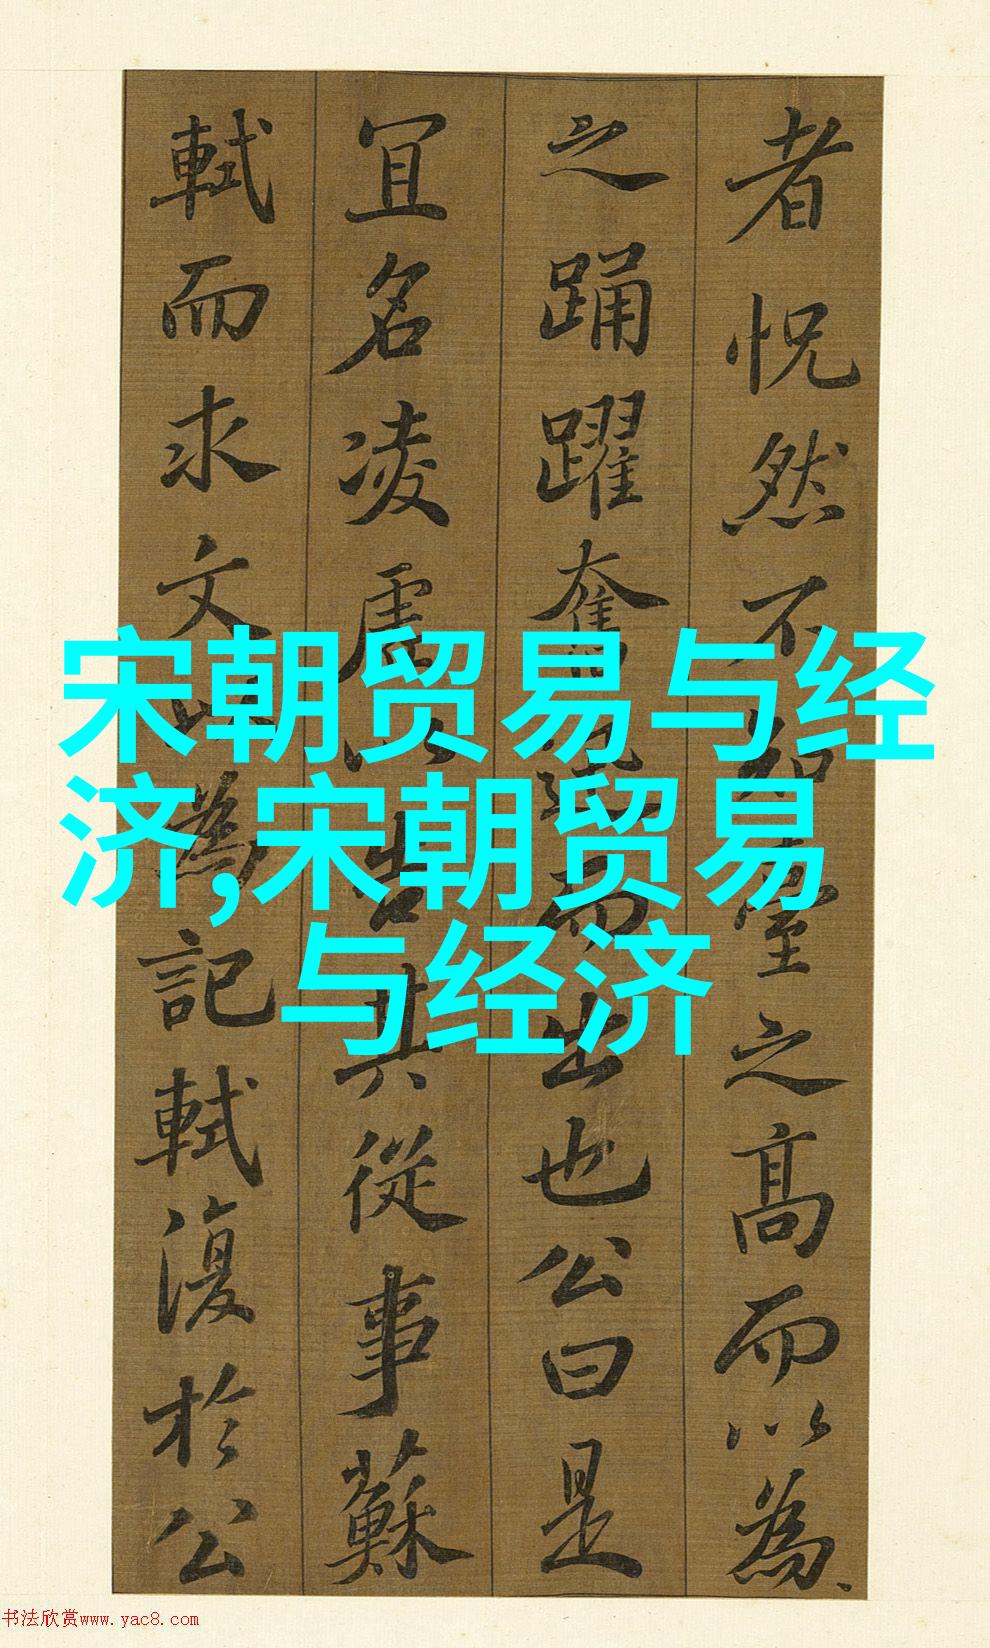 者怳然不知臺之高而以為
之踊躍奮迅而出也公曰是
宜名凌虛以告其從事蘇
軾而求文以為記軾復於公
宋朝贸易与经
济,宋朝贸易
与经济
书法欣赏www.yac8.com